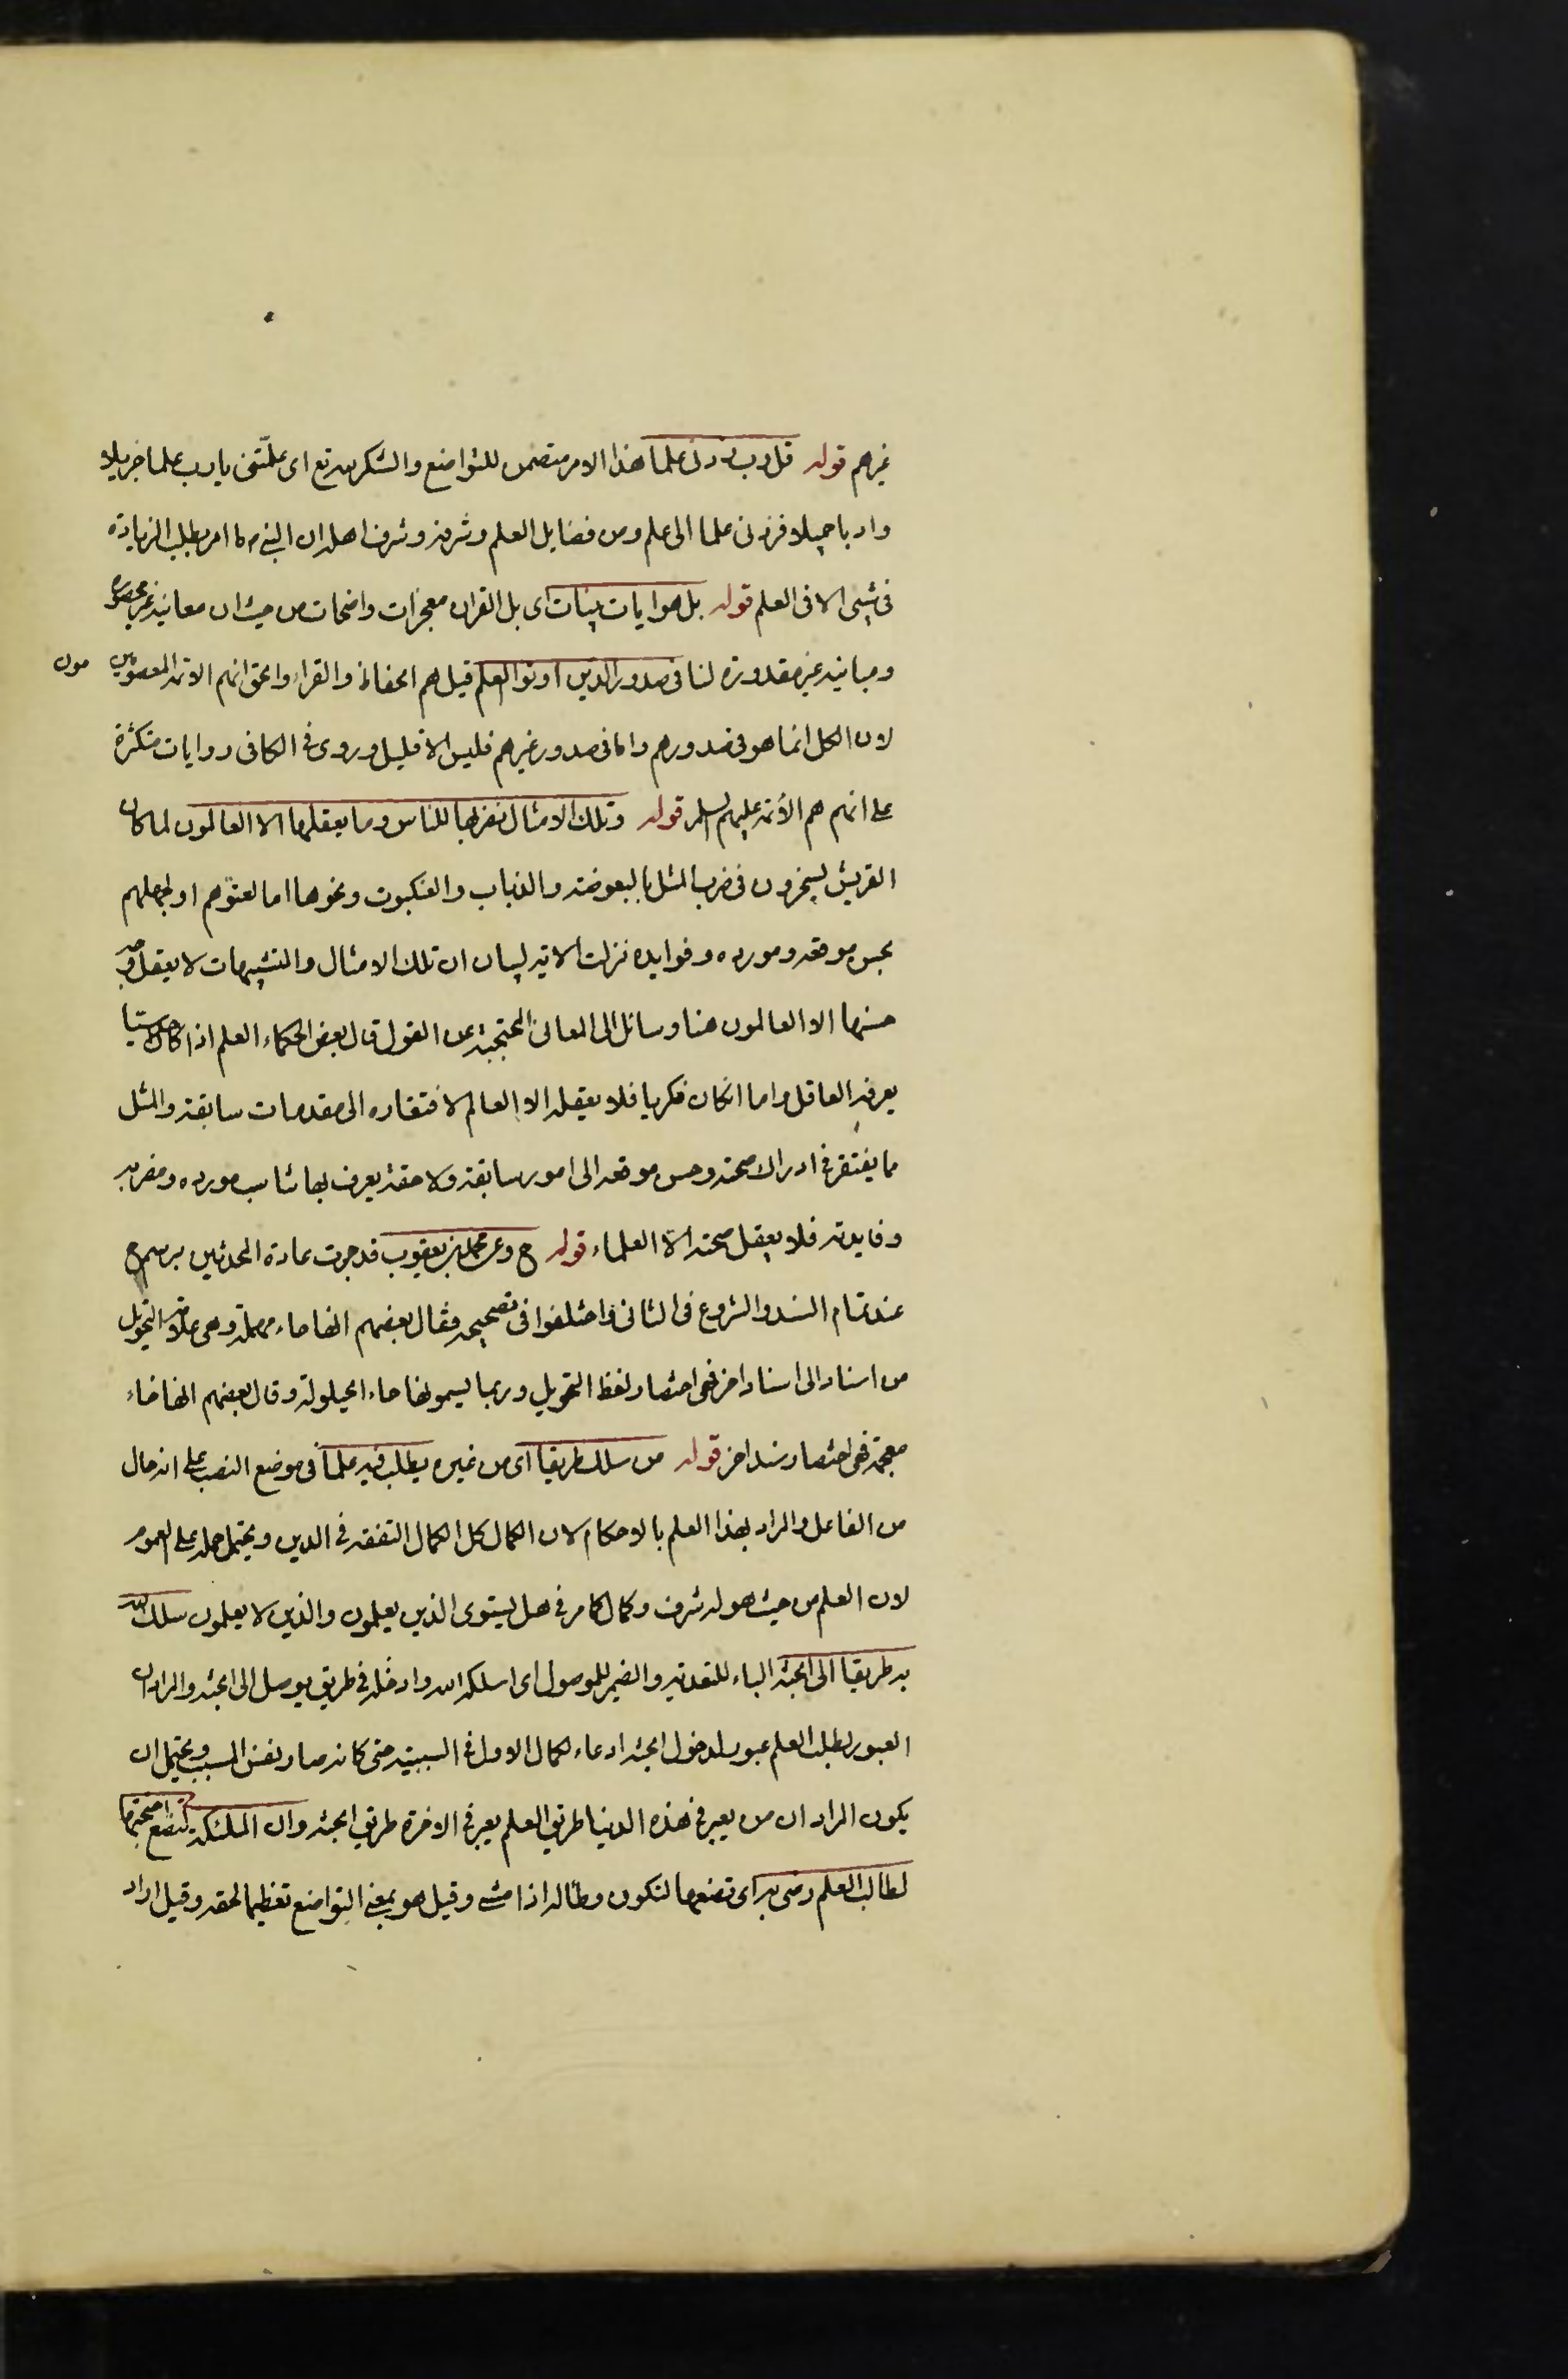 غيرهم قوله قل رب زدنى علما هذا الامر متضمن للتواضع والشكر لله تع اى علّمتنى يا رب علما جزيلا
وادبا جميلا فزدنى علما الى علم ومن فضايل العلم وشرفه وشرف اهله ان النبى ص ما امر بطلب الزيادة
فى شيئ الا فى العلم قوله بل هو ايات بينات اى بل القران معجزات واضحات من حيث ان معانيه غير محصورة
ومبانيه غير مقدورة لنا فى صدور الذين اوتوا العلم قيل هم الحفاظ والقراء والحق انهم الائمة المعصومين مون
لان الكل انما هو فى صدورهم واما فى صدور غيرهم فليس الا قليل وروى فى الكافى روايات متكثرة
على انهم هم الأئمة عليهم السلم قوله وتلك الامثال نضربها للناس وما يعقلها الا العالمون لما كان
القريش يسخرون فى ضرب المثل بالبعوضة والذباب والعنكبوت ونحوها اما لعتوّهم او لجهلهم
بحسن موقعه ومورده وفوايده نزلت الاية لبيان ان تلك الامثال والتشبيهات لا يعقل وجه
حسنها الا العالمون هنا وسائل الى المعانى المحتجبة عن العقول قال بعض الحكماء العلم اذا كان حسيّا
يعرفه العاقل واما ان كان فكريا فلا يعقله الا العالم لافتقاره الى مقدمات سابقة والمثل
مما يفتقر فى ادراك صحته وحسن موقعه الى امور سابقة ولاحقة يعرف بها تناسب مورده ومضربه
وفايدته فلا يعقل صحته الا العلماء قوله ح وعن محمد بن يعقوب قد جرت عادة المحدثين برسم ح
عند تمام السند والشروع فى الثانى واختلفوا فى تصحيحه فقال بعضهم انها حاء مهملة وهى علامة التحويل
من اسناد الى اسناد اخر فهى اختصار لفظ التحويل وربما يسمونها حاء الحيلولة وقال بعضهم انها خاء
معجمة فهى اختصار سند اخر قوله من سلك طريقا اى من غيره يطلب فيه علما فى موضع النصب على انه حال
من الفاعل والمراد بهذا العلم بالاحكام لان الكمال كل الكمال التفقه فى الدين ويحتمل حمله على العموم
لان العلم من حيث هو له شرف وكمال كما مر فى هل يستوى الذين يعلمون والذين لا يعلمون سلك الله
به طريقا الى الجنة الباء للتعدية والضمير للموصول اى اسلكه الله وادخله فى طريق يوصل الى الجنة والمراد ان
العبور لطلب العلم عبور لدخول الجنة ادعاء لكمال الاول فى السببية حتى كانه صار نفس المسبب ويحتمل ان
يكون المراد ان من يعبر فى هذه الدنيا طريق العلم يعبر فى الاخرة طريق الجنة وان الملئكة لتضع اجنحتها
لطالب العلم رضى به اى تضعها لتكون وطاله اذا مشى وقيل هو بمعنى التواضع تعظيما لحقه وقيل اراد